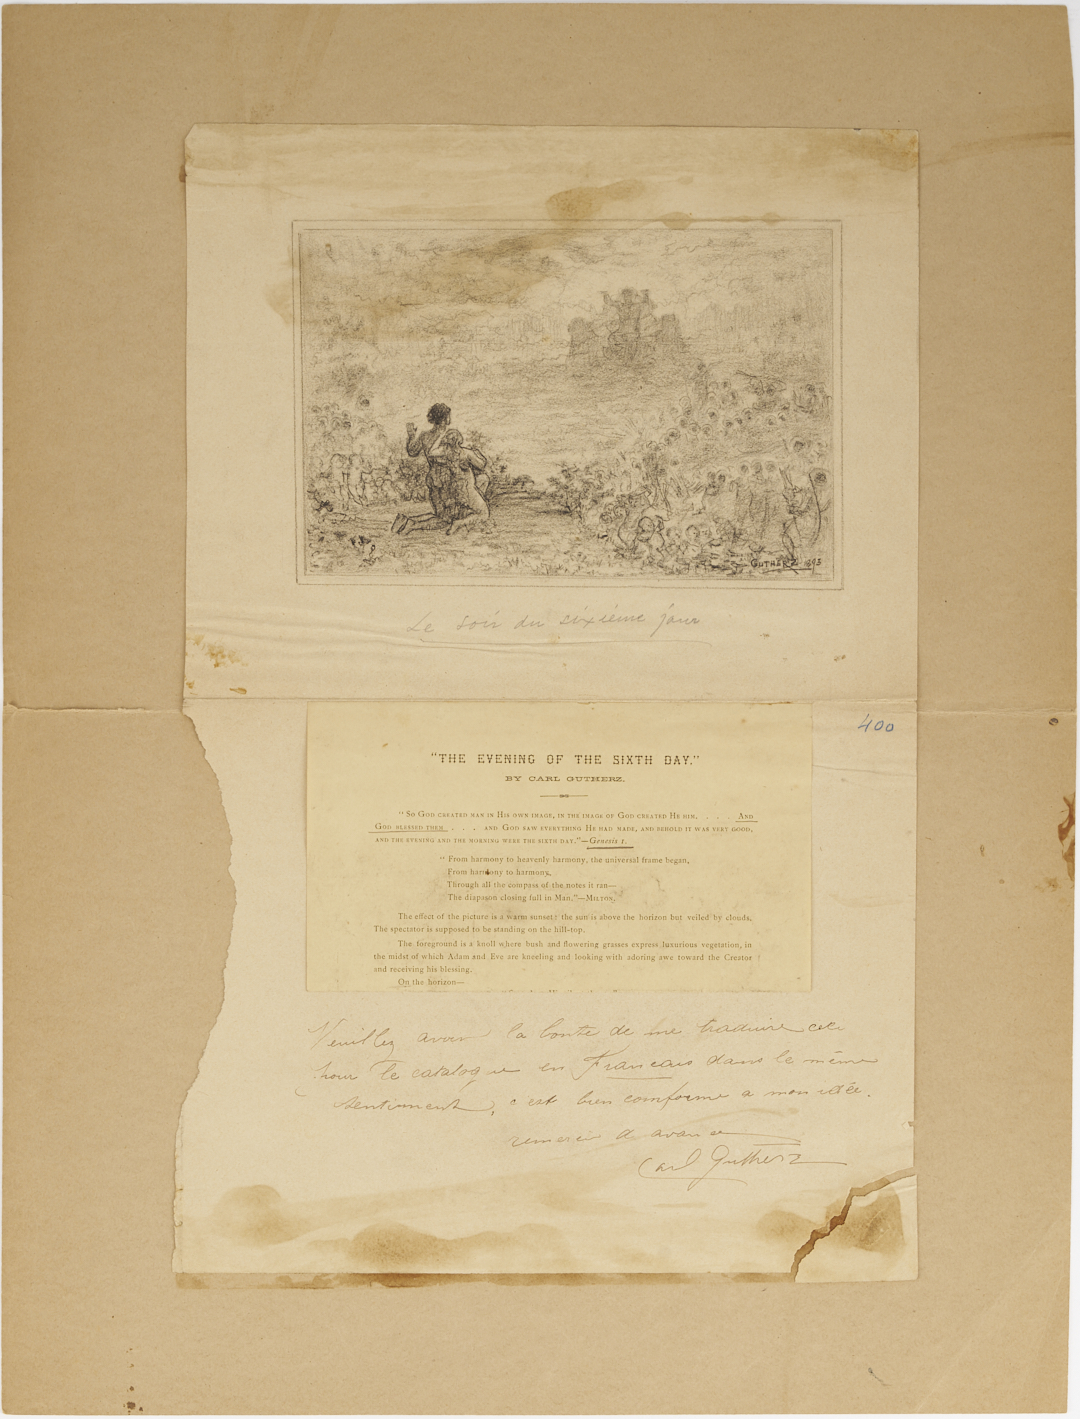 GUTHERZ 1893
Le soir du sixième jour
400
"THE EVENING OF THE SIXTH DAY."
BY CARL GUTHERZ.
"So God created man in His own image, in the image of God created He him. . . . And
God blessed them . . . and God saw everything He had made, and behold it was very good,
and the evening and the morning were the sixth day."—Genesis 1.
"From harmony to heavenly harmony, the universal frame began,
From harmony to harmony,
Through all the compass of the notes it ran—
The diapason closing full in Man."—Milton.
The effect of the picture is a warm sunset: the sun is above the horizon but veiled by clouds.
The spectator is supposed to be standing on the hill-top.
The foreground is a knoll where bush and flowering grasses express luxurious vegetation, in
the midst of which Adam and Eve are kneeling and looking with adoring awe toward the Creator
and receiving his blessing.
On the horizon—
Veuillez avoir la bonte de me traduire ceci
pour le catalogue en Francais dans le même
sentiment, c'est bien comforme a mon idée.
remercie d'avance
Carl Gutherz